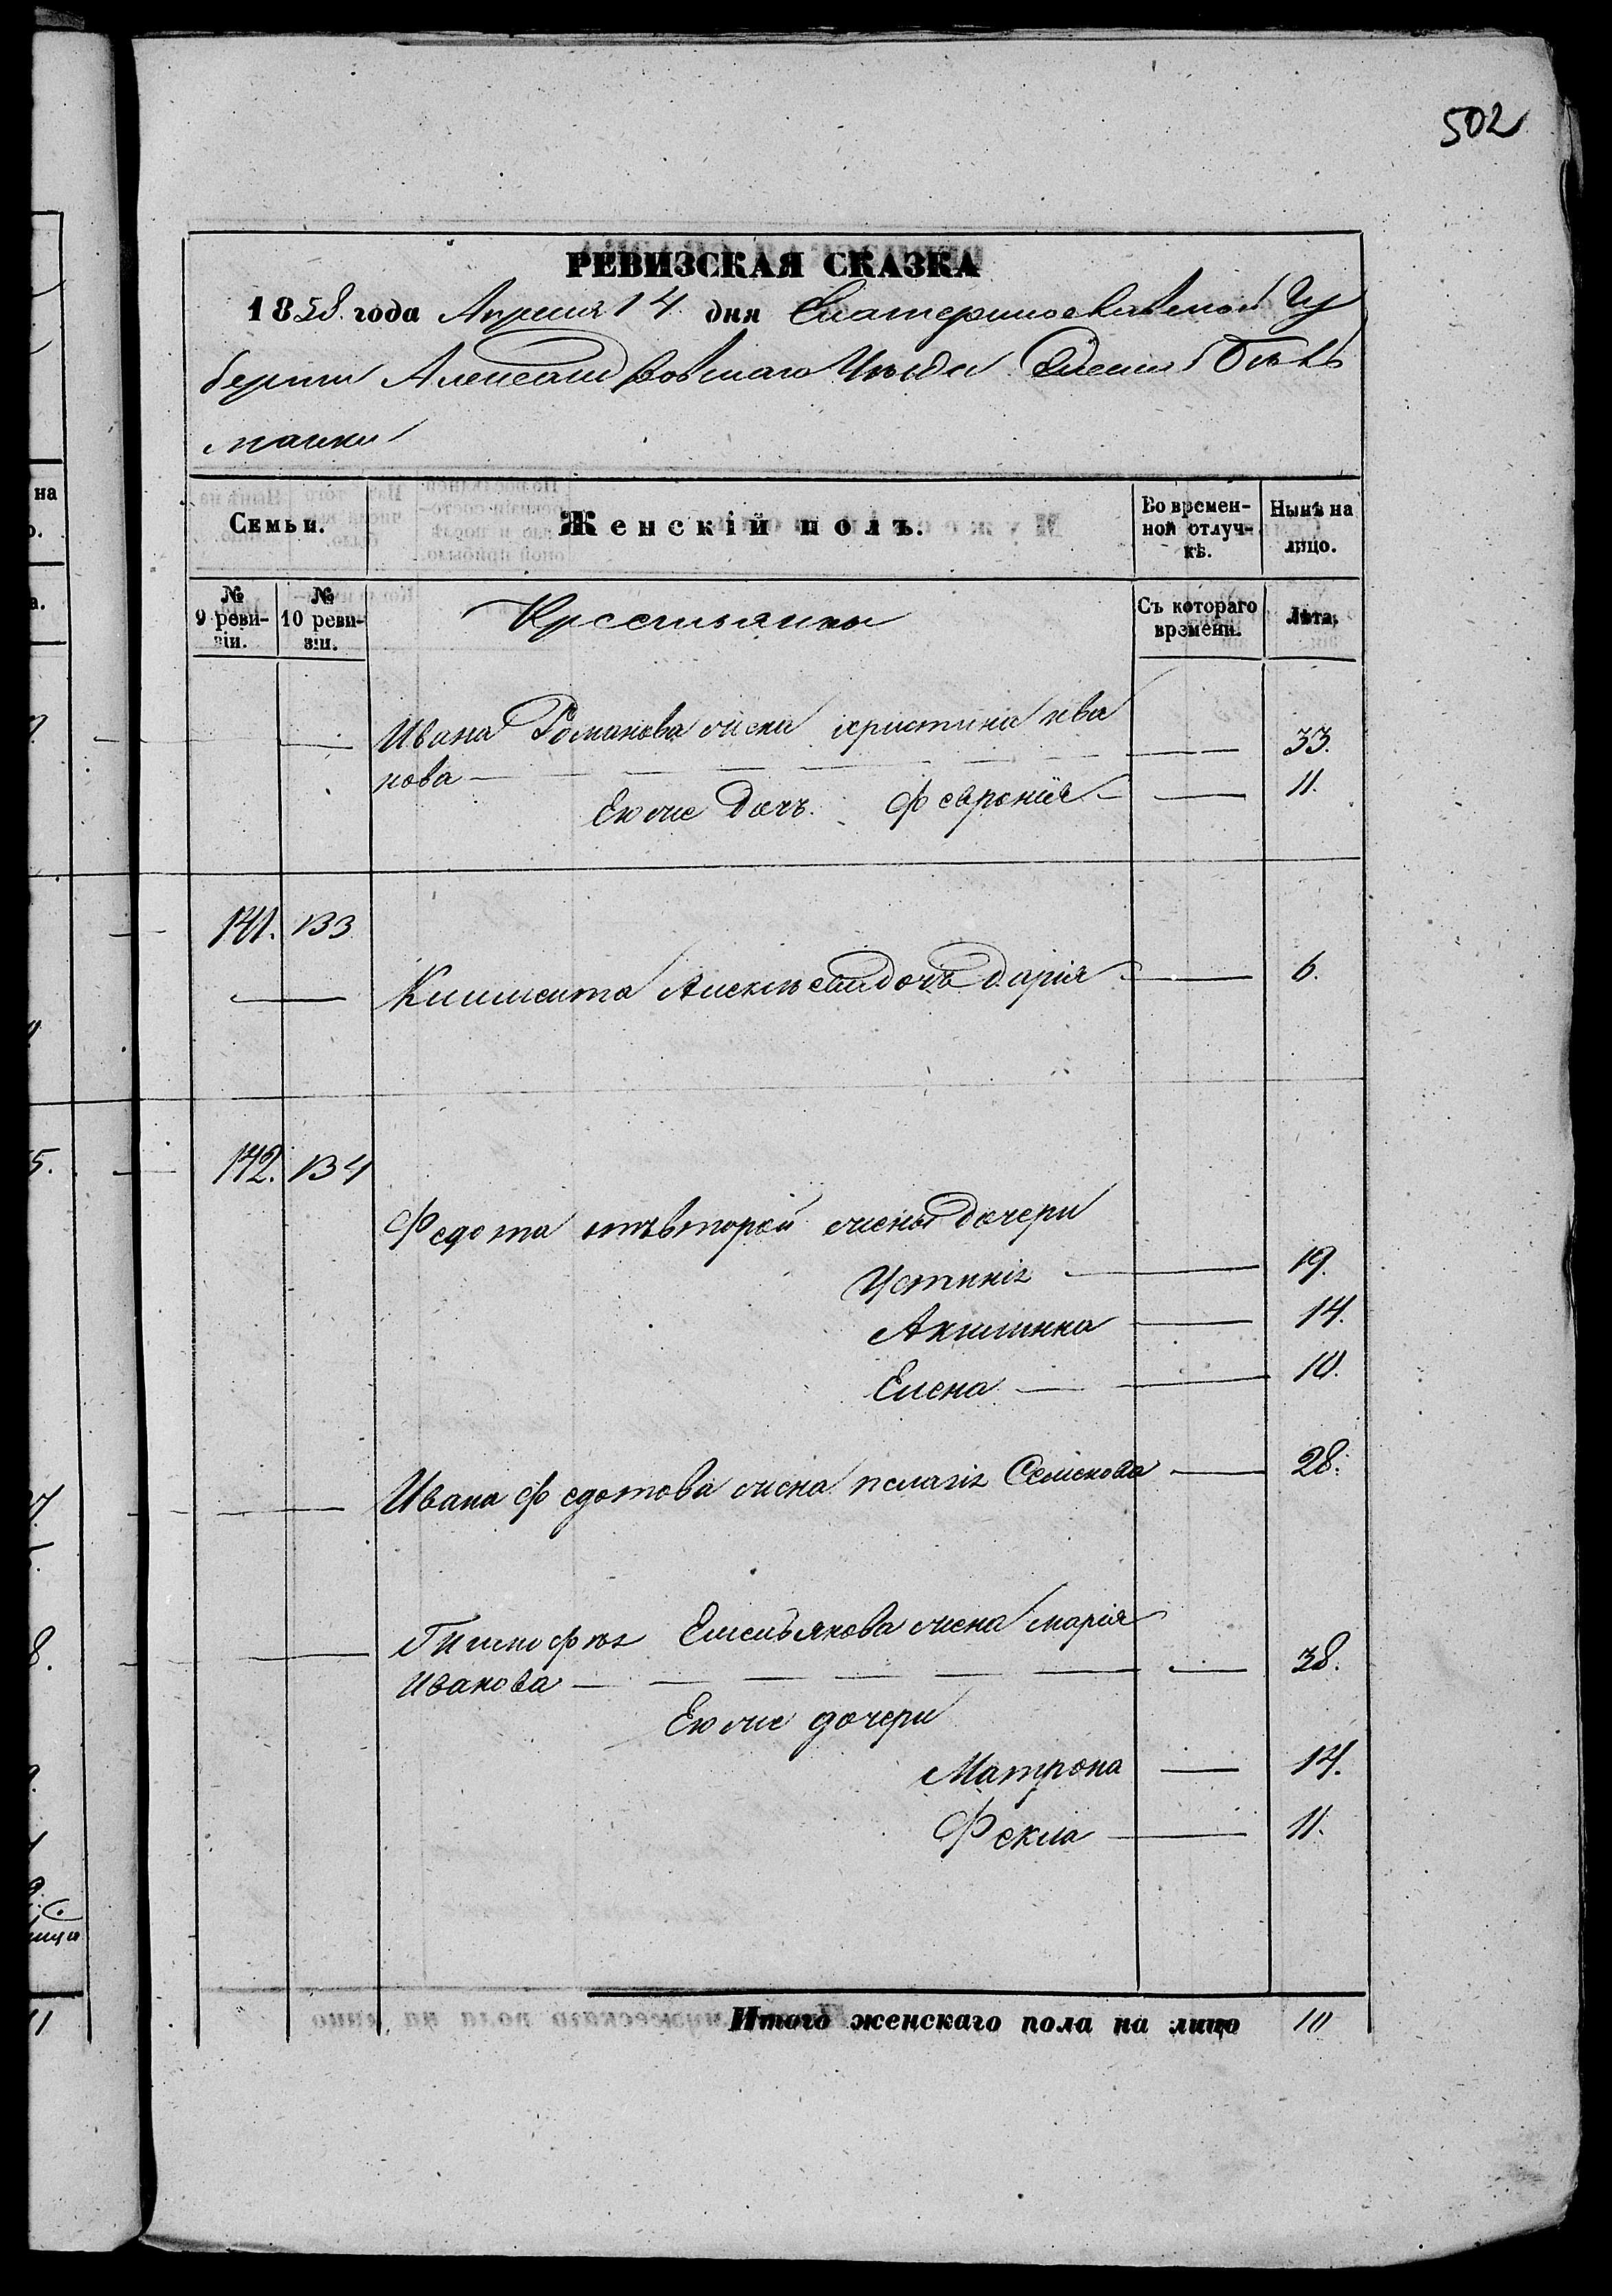 502
РЕВИЗСКАЯ СКАЗКА
1858. года Апреля 14. дня Екатеринославской Гу
берніи Александровскаго Уѣзда Села Бѣль
манки
Семьи. Женскій полъ. Во времен-ной отлуч-кѣ. Нынѣ на лицо.
№ 9 реви-зіи. № 10 реви-зіи. Крестьянки Съ котораго времени. Лѣта.
Ивана Романова жена христина ива
нова — 33.
Ею же дочь Феврония — 11.
141. 133
Климента Алексѣева дочь дарія — 6.
142. 134
Федота отъ второй жены дочери
Устинія — 19.
Акилинна — 14.
Елена — 10.
Ивана Федотова жена пелагія Семенова — 28.
Тимофѣя Емельянова жена марія
Иванова — 38.
Ею же дочери
Матрона — 14.
Фекла — 11.
Итого женскаго пола на лицо 10